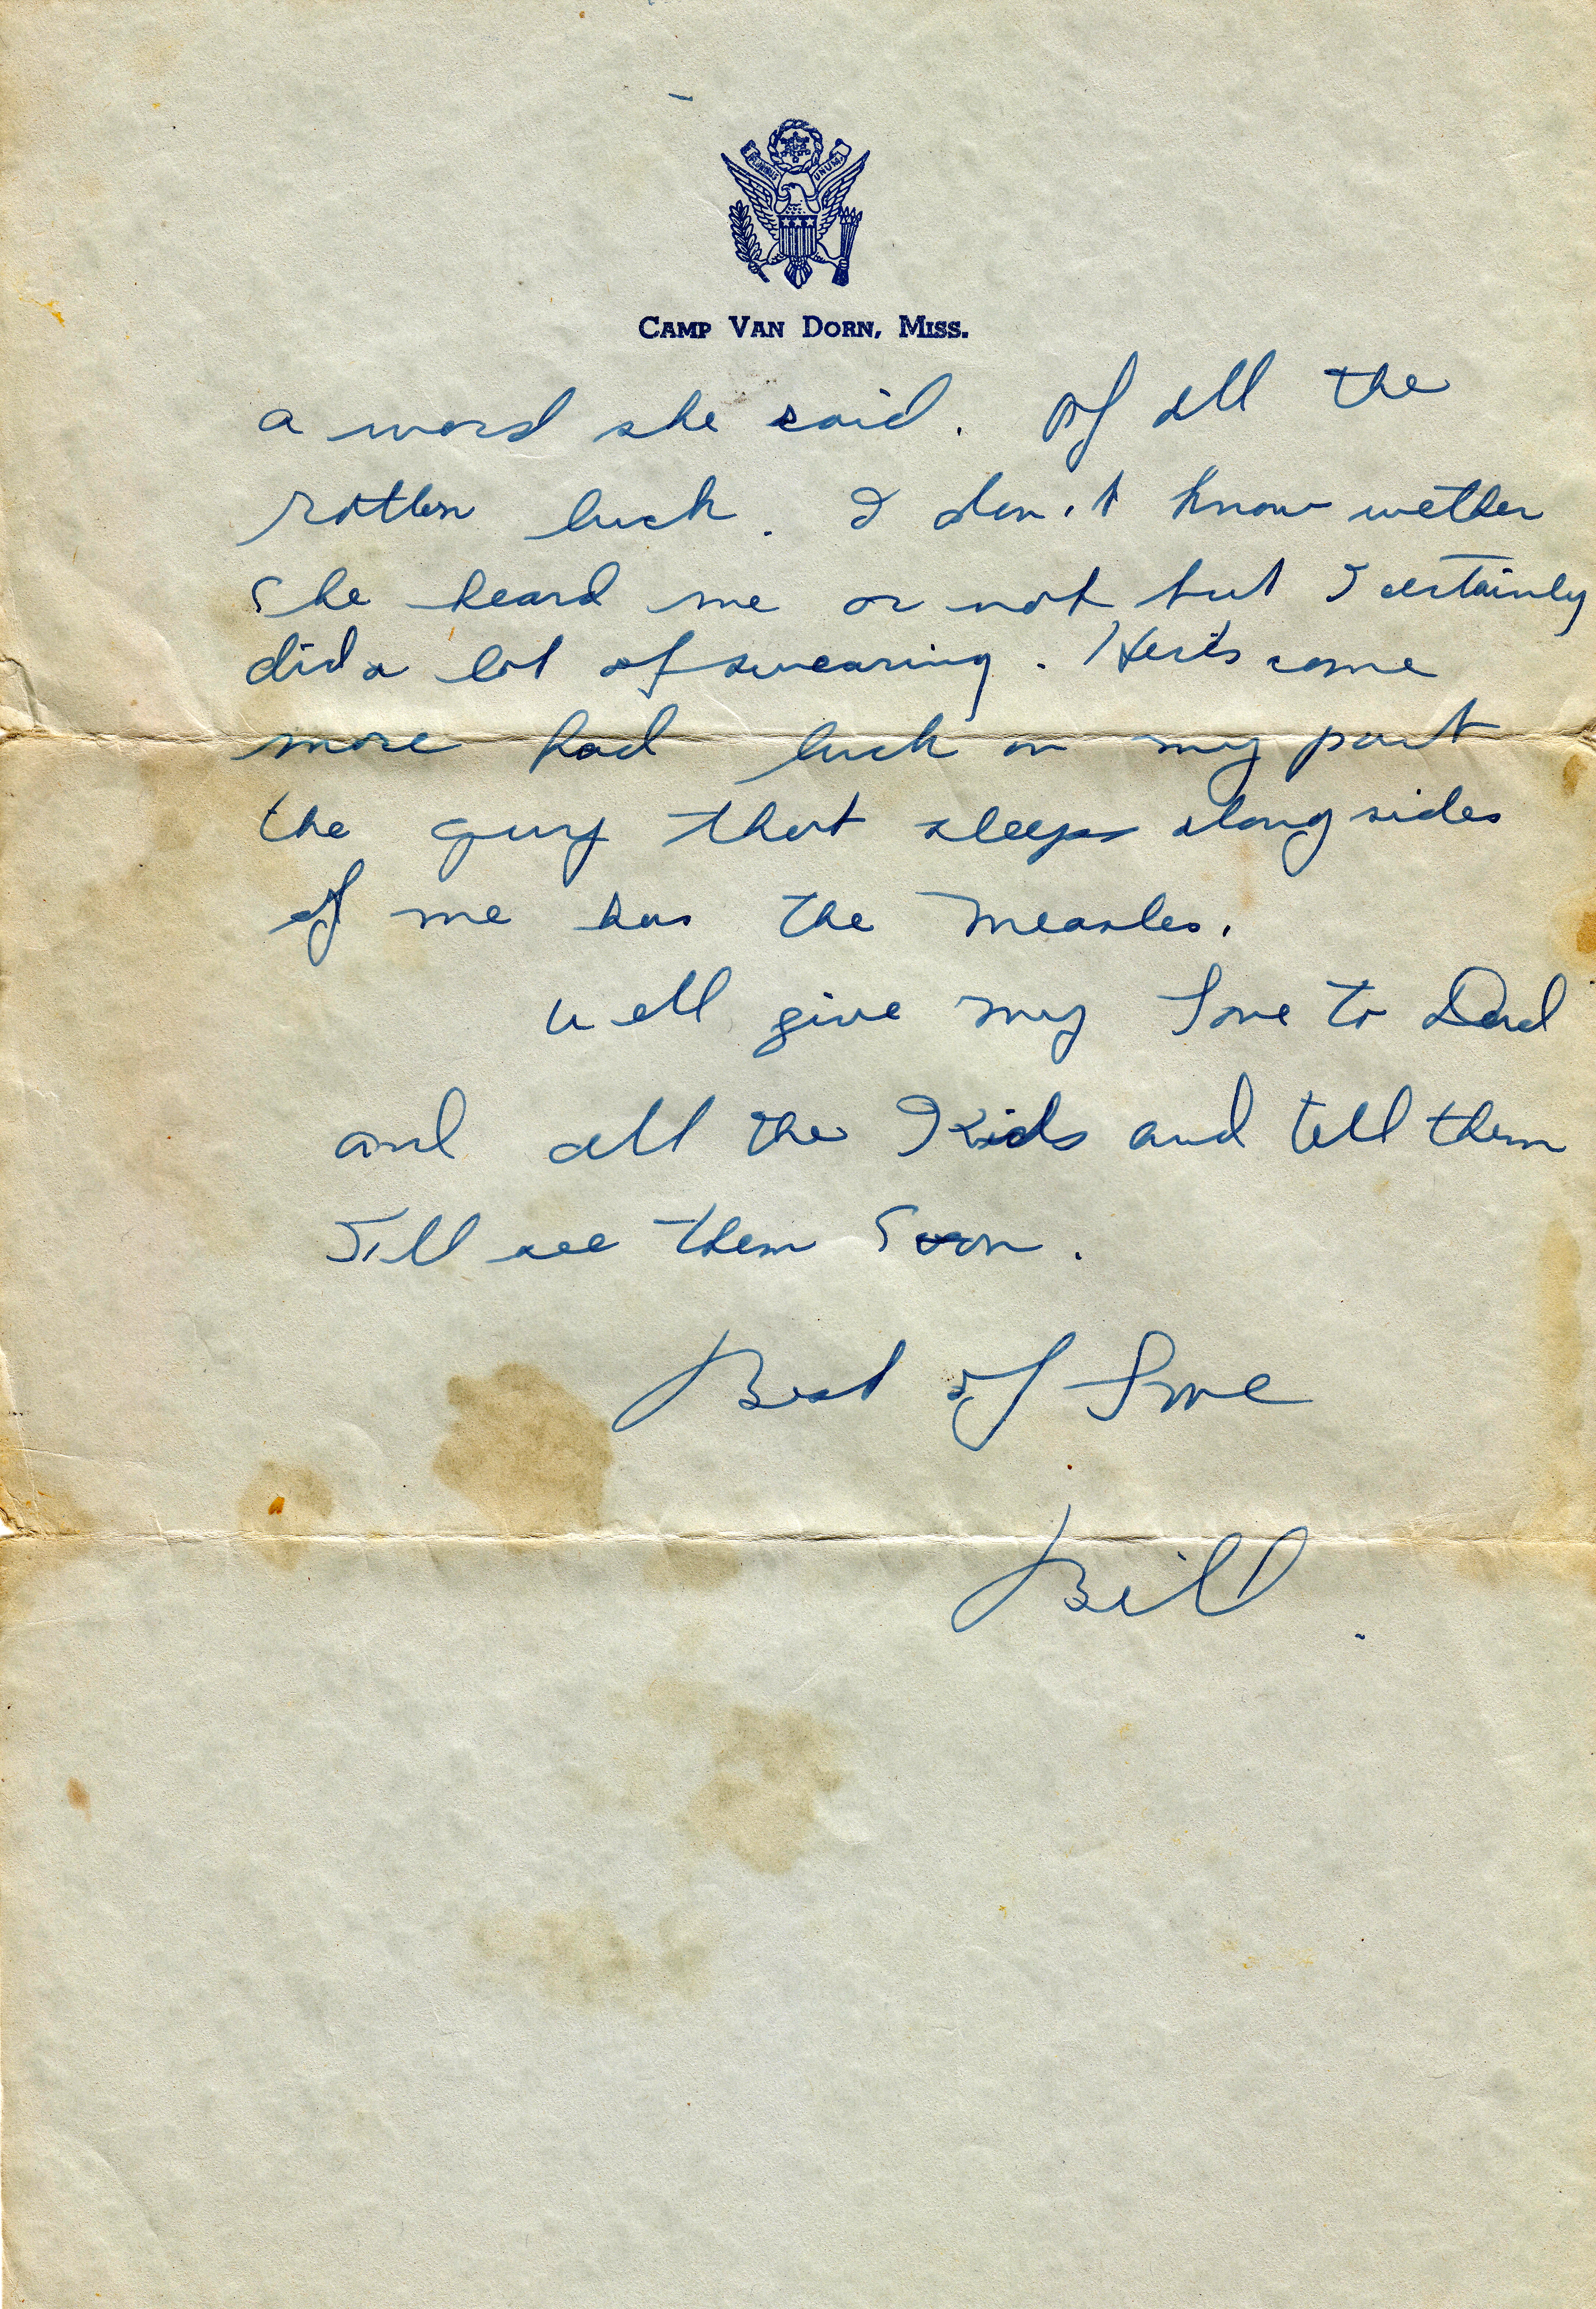 PLURIBUS UNUM
CAMP VAN DORN, MISS.
a word she said. Of all the
rotten luck. I don't know wether
She heard me or not but I certainly
did a lot of swearing. Her's some
more bad luck on my part
the guy that sleeps along sides
of me has the measles.
Well give my love to Dad
and all the Kids and tell them
I'll see them Soon.
Best of Love
Bill.